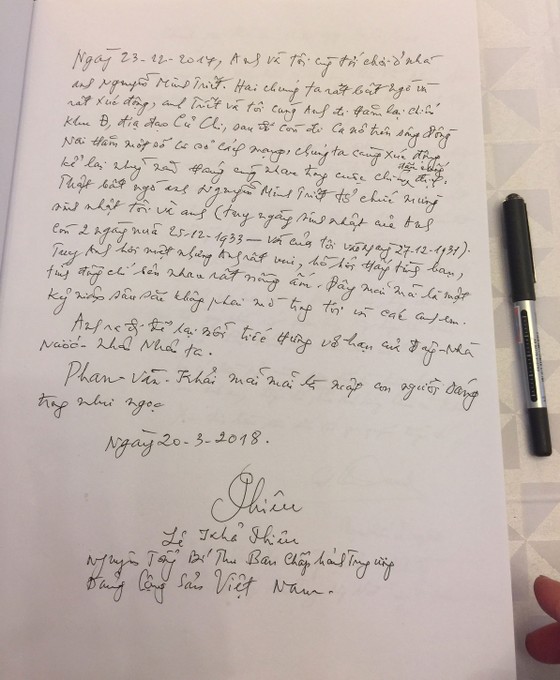 Ngày 23-12-2017, Anh và tôi cùng tới chơi ở nhà
anh Nguyễn Minh Triết. Hai chúng ta rất bất ngờ và
rất xúc động, anh Triết và tôi cùng Anh đi thăm lại chiến
khu Đ, địa đạo Củ Chi, sau đó còn đi Ca nô trên sông Đồng
Nai thăm một số cơ sở cách mạng, chúng ta càng xúc động
kể lại những năm tháng cùng nhau trong cuộc chiến
Thật bất ngờ anh Nguyễn Minh Triết tổ chức mừng
sinh nhật tôi và anh (tuy ngày sinh nhật của Anh
còn 2 ngày nữa 25-12-1933 – và của tôi vào ngày 27-12-1931).
Tuy Anh hơi mệt nhưng Anh rất vui, hồ hởi thấy tình bạn,
tình đồng chí bên nhau rất nồng ấm. Đây mãi mãi là một
kỷ niệm sâu sắc không phai mờ trong tôi và các anh em.
Anh ra đi để lại nỗi tiếc thương vô hạn của Đảng-Nhà
Nước- Nhân dân ta.
Phan-Văn-Khải mãi mãi là một con người sáng
trong như ngọc
Ngày 20-3-2018.
Phiêu
Lê Khả Phiêu
Nguyên Tổng Bí Thư Ban Chấp hành Trung ương
Đảng Cộng Sản Việt Nam.